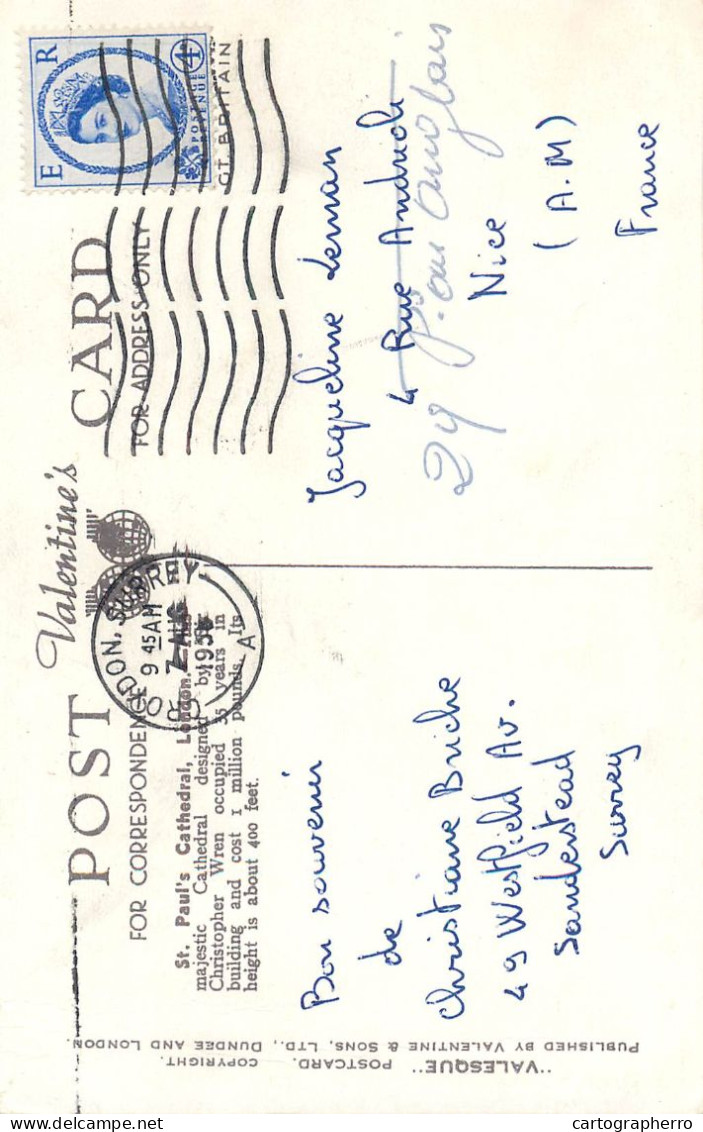 POST CARD
Valentine's
FOR CORRESPONDENCE
FOR ADDRESS ONLY
St. Paul's Cathedral, London.
majestic Cathedral designed by
Christopher Wren occupied 35 years in
building and cost 1 million pounds. Its
height is about 400 feet.
CROYDON, SURREY
9 45 AM
A
E R
POSTAGE
REVENUE
4
GT. BRITAIN
Bon souvenir
de
Christiane Briche
49 Westfield Av.
Sanderstead
Surrey
Jacqueline Leman
4 Rue Andrioli
29
Nice
(A.M)
France
"VALESQUE" POSTCARD. COPYRIGHT.
PUBLISHED BY VALENTINE & SONS, LTD., DUNDEE AND LONDON.
cartographerro